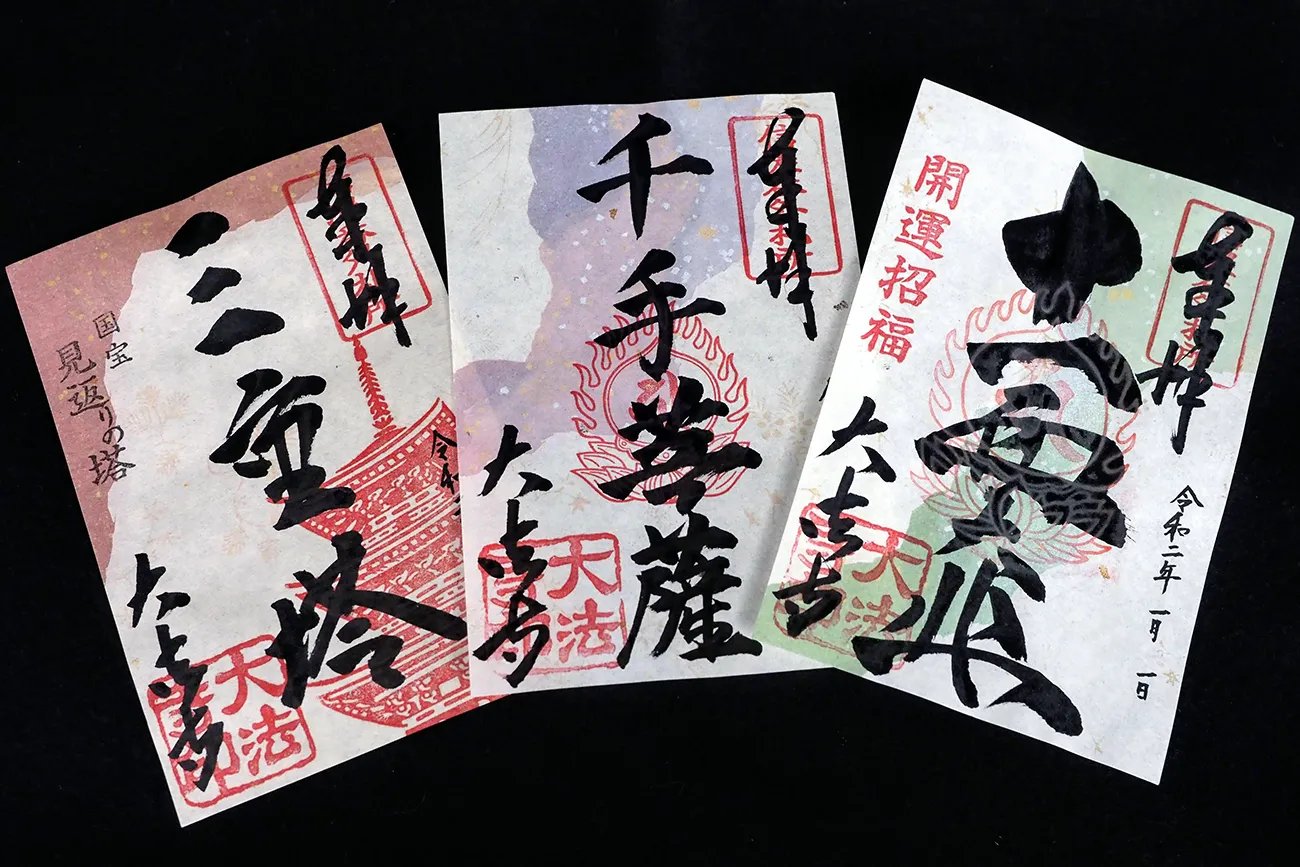 奉拝
令和
三重塔
国宝
見返りの塔
大法寺
大法寺印
奉拝
千手菩薩
大法寺
大法寺印
奉拝
令和二年 一月 一日
十一面
開運招福
大法寺
大法寺印